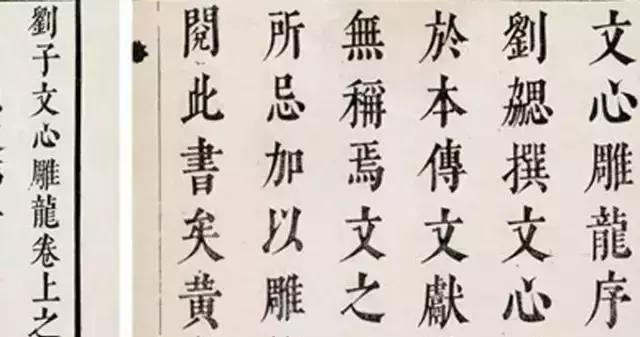 文心雕龍序
劉勰撰文心
於本傳文獻
無稱焉文之
所忌加以雕
閱此書矣黄
劉子文心雕龍卷上之